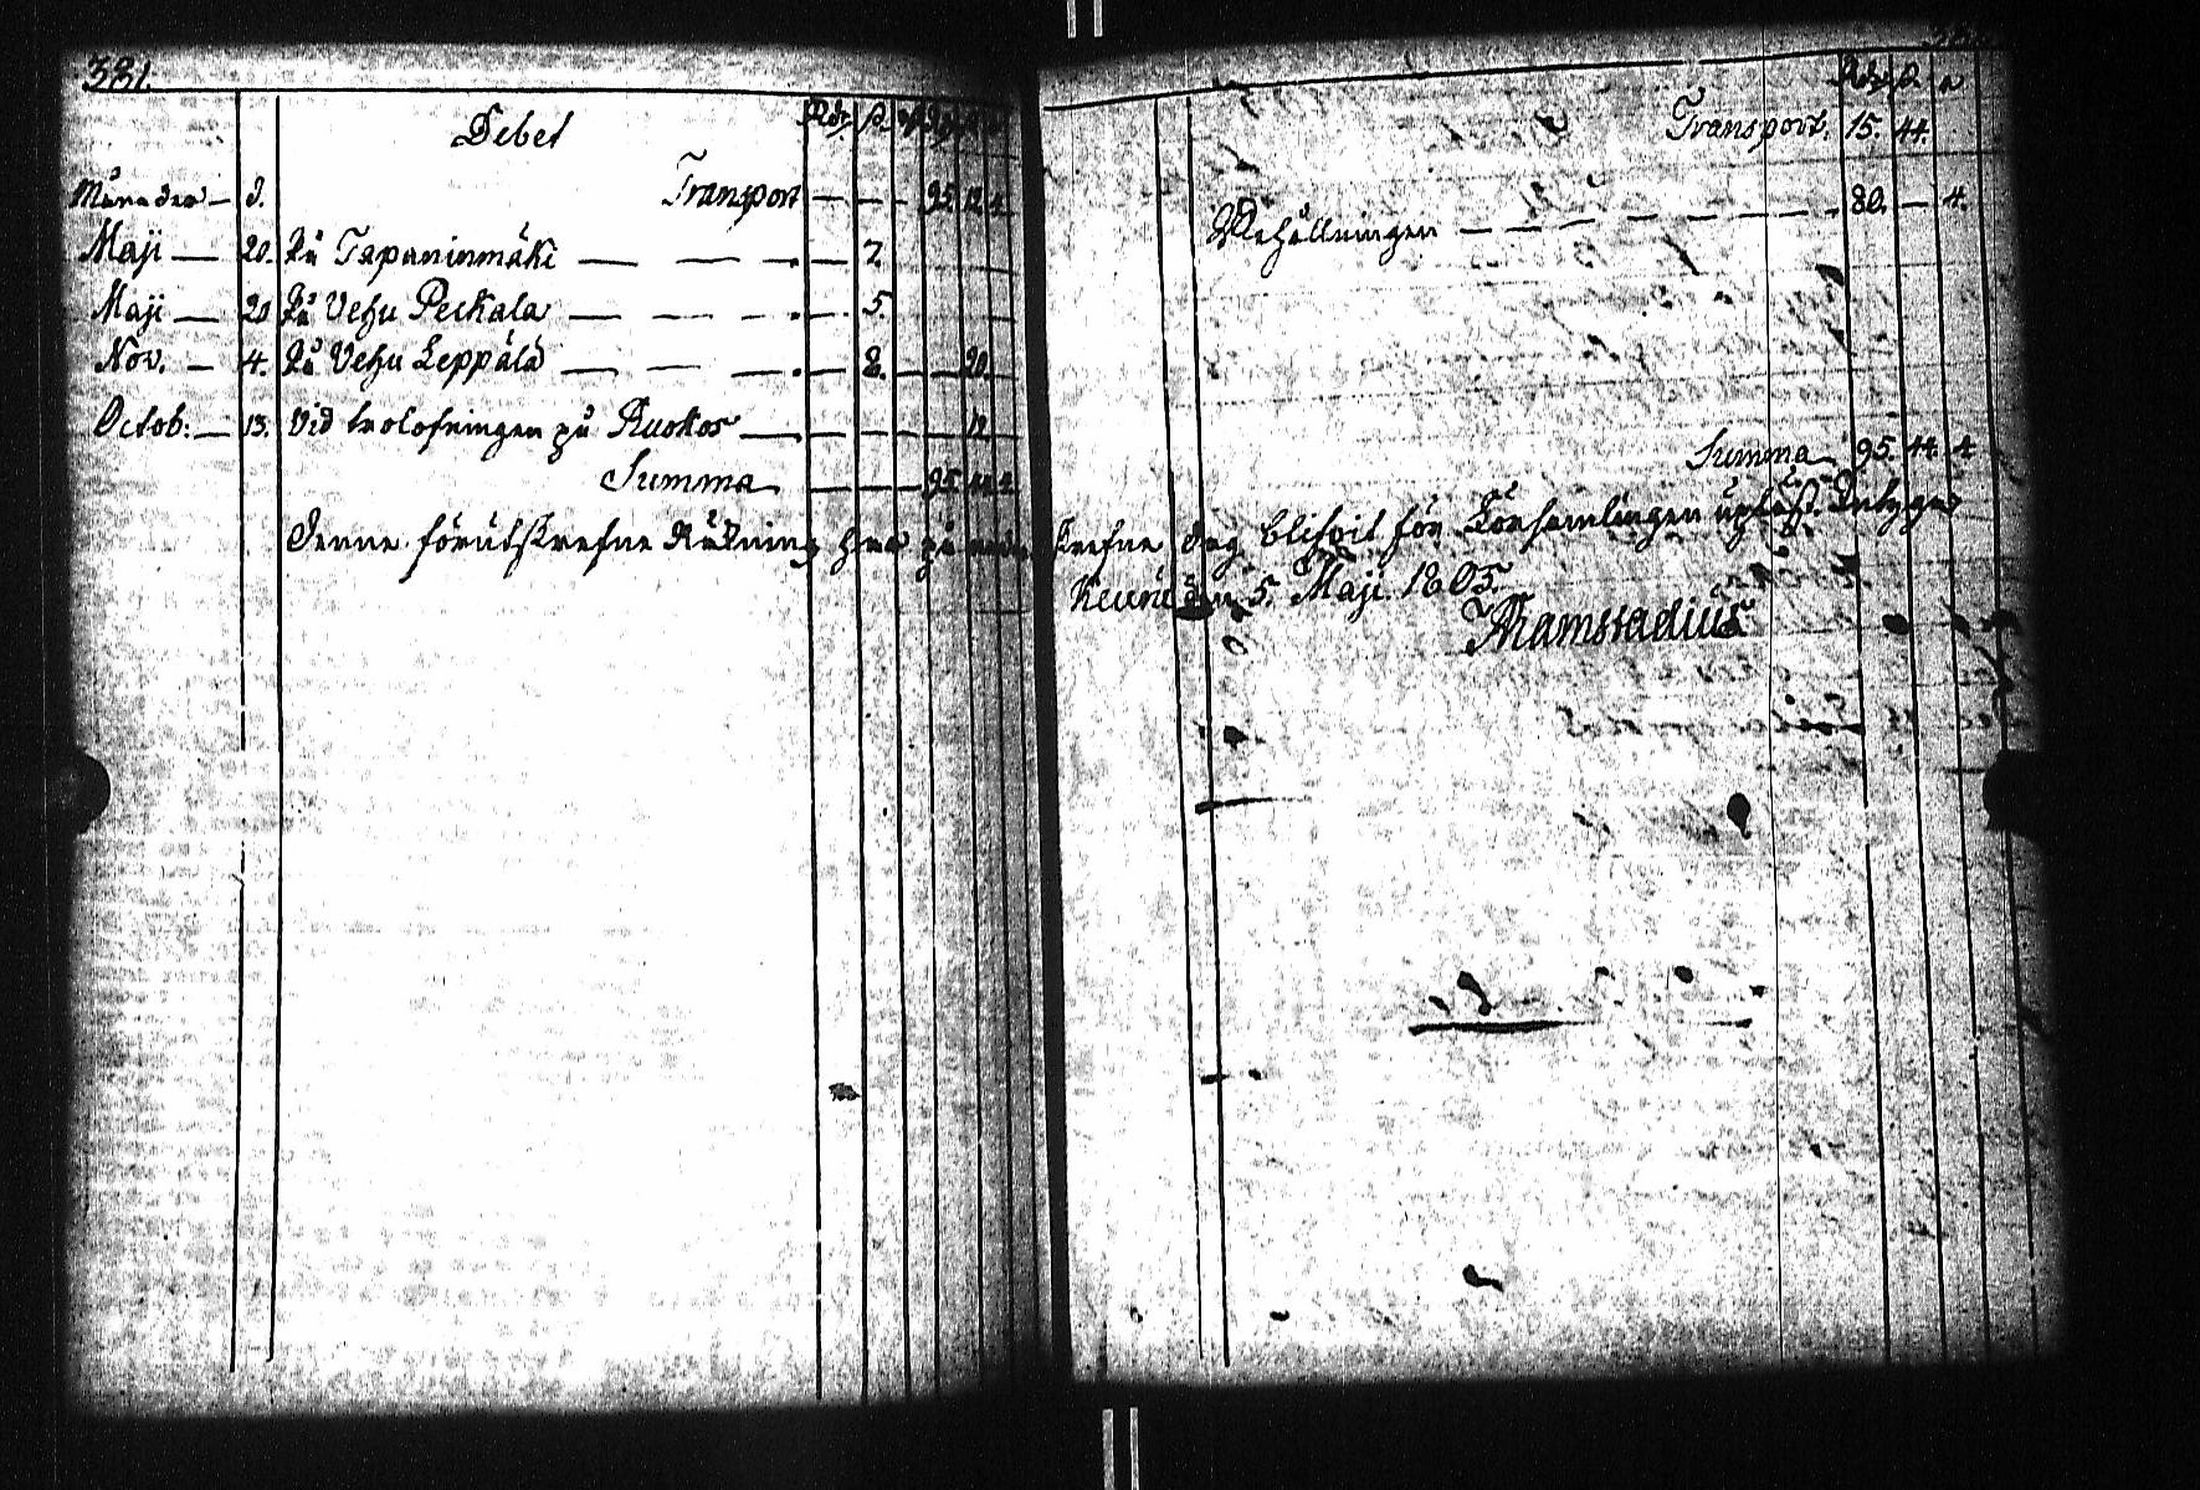 381.
Debet Rdr s.
Månader — d. Transport — — — 95. 12. 4
Maji — 20. På Tapaninmäki — — — 7.
Maji — 20 På Vehu Peckala — — — 5.
Nov. — 4. På Vehu Leppälä — — — 8. — — 20.
Octob: — 13. Vid trolofningen på Ruokos — — — — — 12
Summa — — — 95. 44. 4
Denne förutskrefne Räkning har på
Rdr s.
Transport. 15. 44.
Behållningen — — — 80. — 4.
Summa 95. 44. 4
skrefne dag blifvit för Församlingen upläst. Intygar
Keuru den 5. Maji. 1805.
Ramstadius